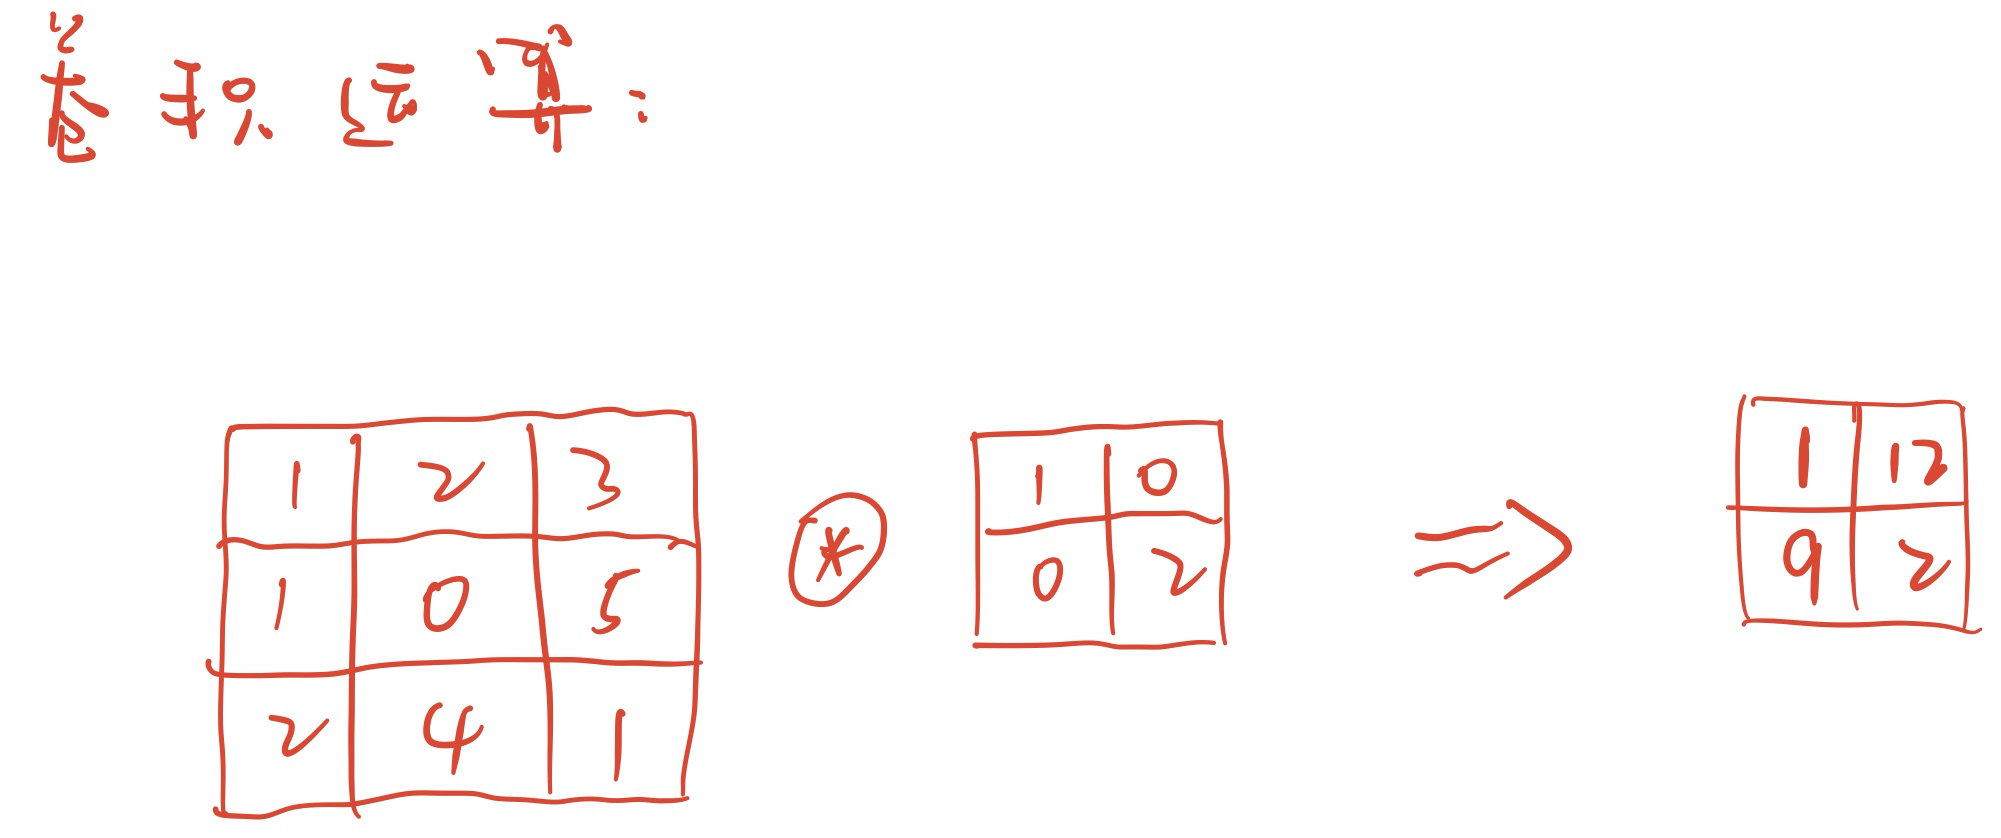 卷积运算:
1 2 3
1 0 5
2 4 1
*
1 0
0 2
⇒
1 12
9 2